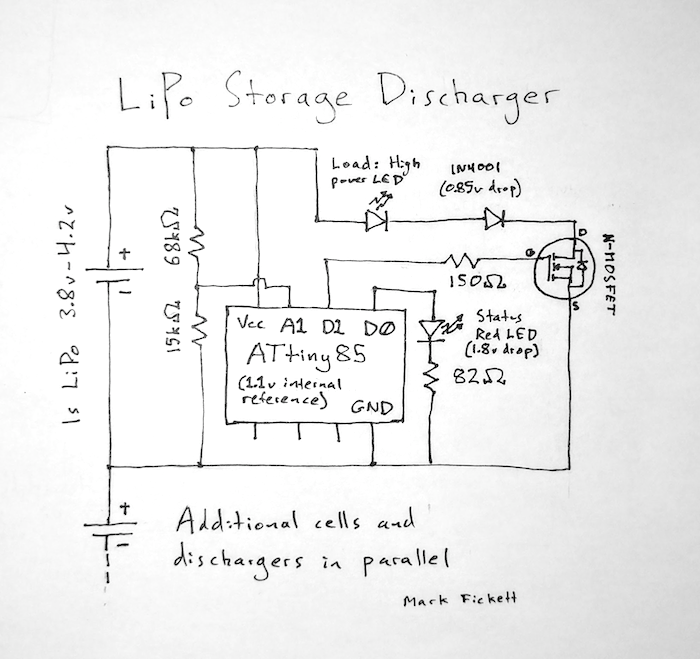 LiPo Storage Discharger
Load: High
power LED
1N4001
(0.85v drop)
68kΩ
15kΩ
1s LiPo 3.8v-4.2v
+
-
D
G
S
N-MOSFET
150Ω
Vcc A1 D1 D0
ATtiny85
(1.1v internal
reference)
GND
Status
Red LED
(1.8v drop)
82Ω
+
-
Additional cells and
dischargers in parallel
Mark Fickett